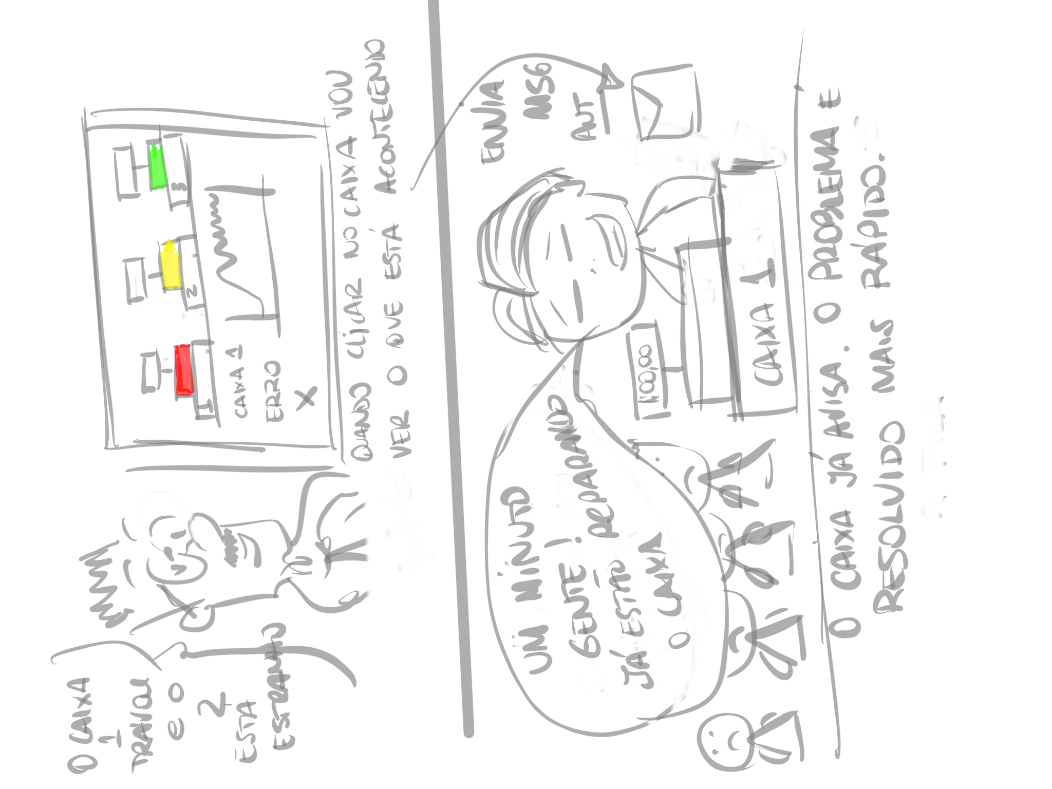 O CAIXA
1
TRAVOU
e O
2
ESTA
ESTRANHO
1 2 3
CAIXA 1
ERRO
X
QUANDO CLICAR NO CAIXA VOU
VER O QUE ESTÁ ACONTECENDO
ENVIA
MSG
AUT
UM MINUTO
GENTE!
JÁ ESTÃO REPARANDO
O CAIXA
CAIXA 1
O CAIXA JÁ AVISA. O PROBLEMA E
RESOLVIDO MAIS RÁPIDO.